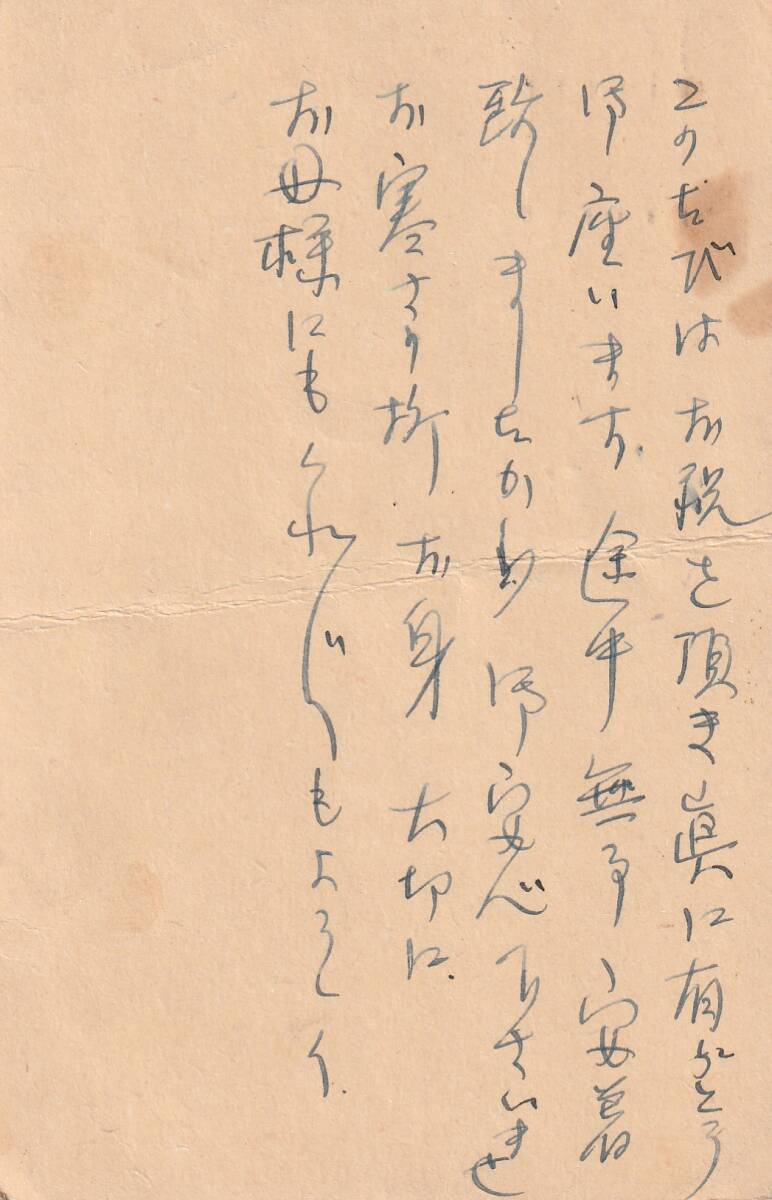 このたびはお祝を頂き眞に有がとう
御座います。途中無事安着
致しましたから御安心下さいませ
お寒さの折お身大切に。
お母様にもくれ〴〵もよろしく.